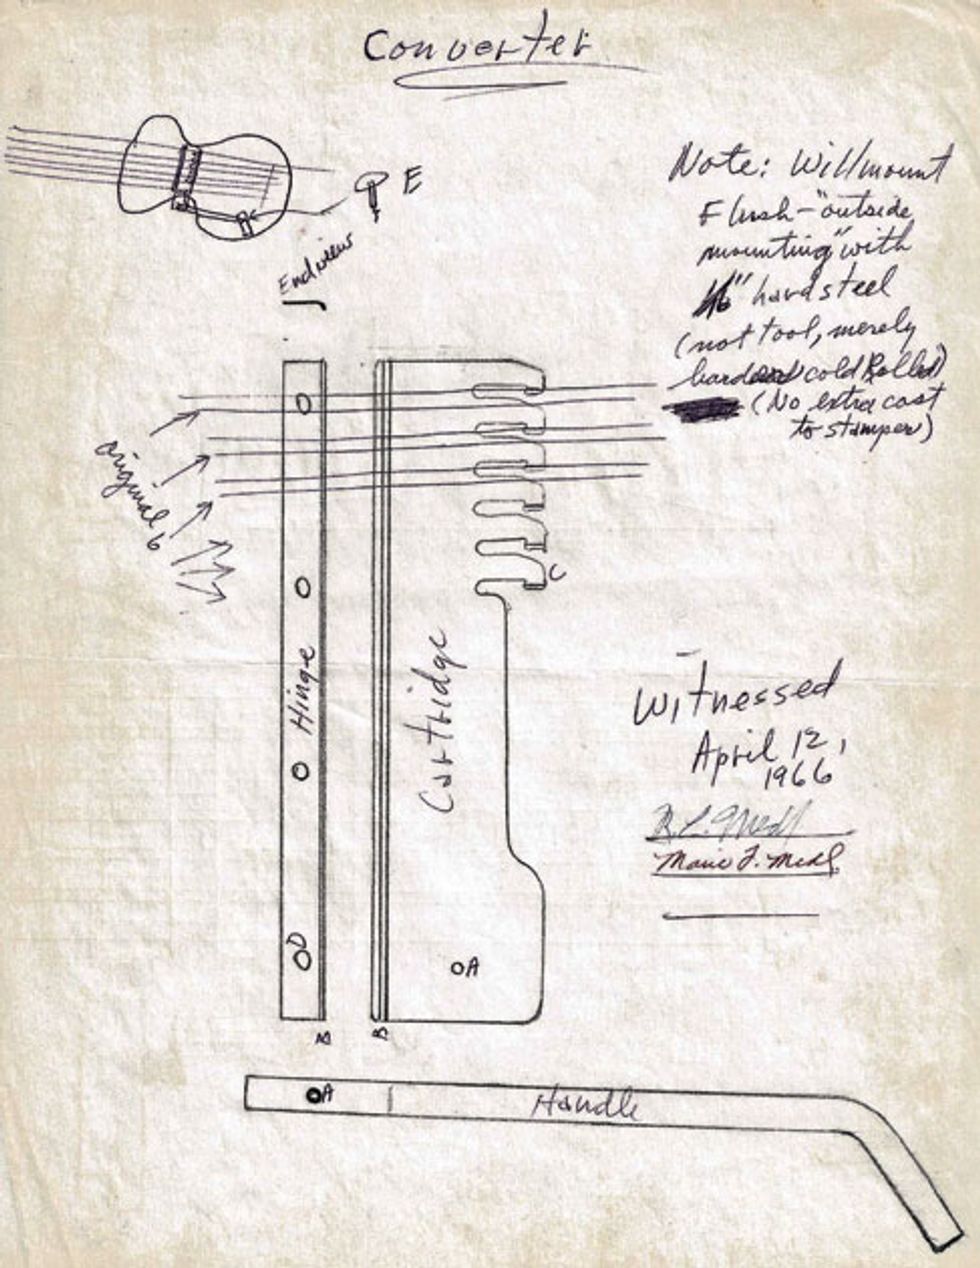 Converter
E
End view
Note: Will mount
Flush - "outside
mounting" with
1/16" hard steel
(not tool, merely
hard cold Rolled)
(No extra cost
to stamper)
original 6
C
Hinge
Cartridge
Witnessed
April 12,
1966
R. L.
Marie L.
D
A
B
B
A
Handle